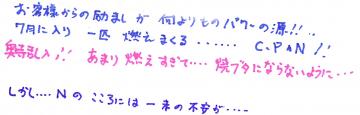 お客様からの励ましが何よりものパワーの源!!..
7月に入り 一匹 燃えまくる...... C.P.N !!
乱入!! あまり燃えすぎて.... 焼ブタにならないように...
しかし.... Nの こころには 一末の不安が....